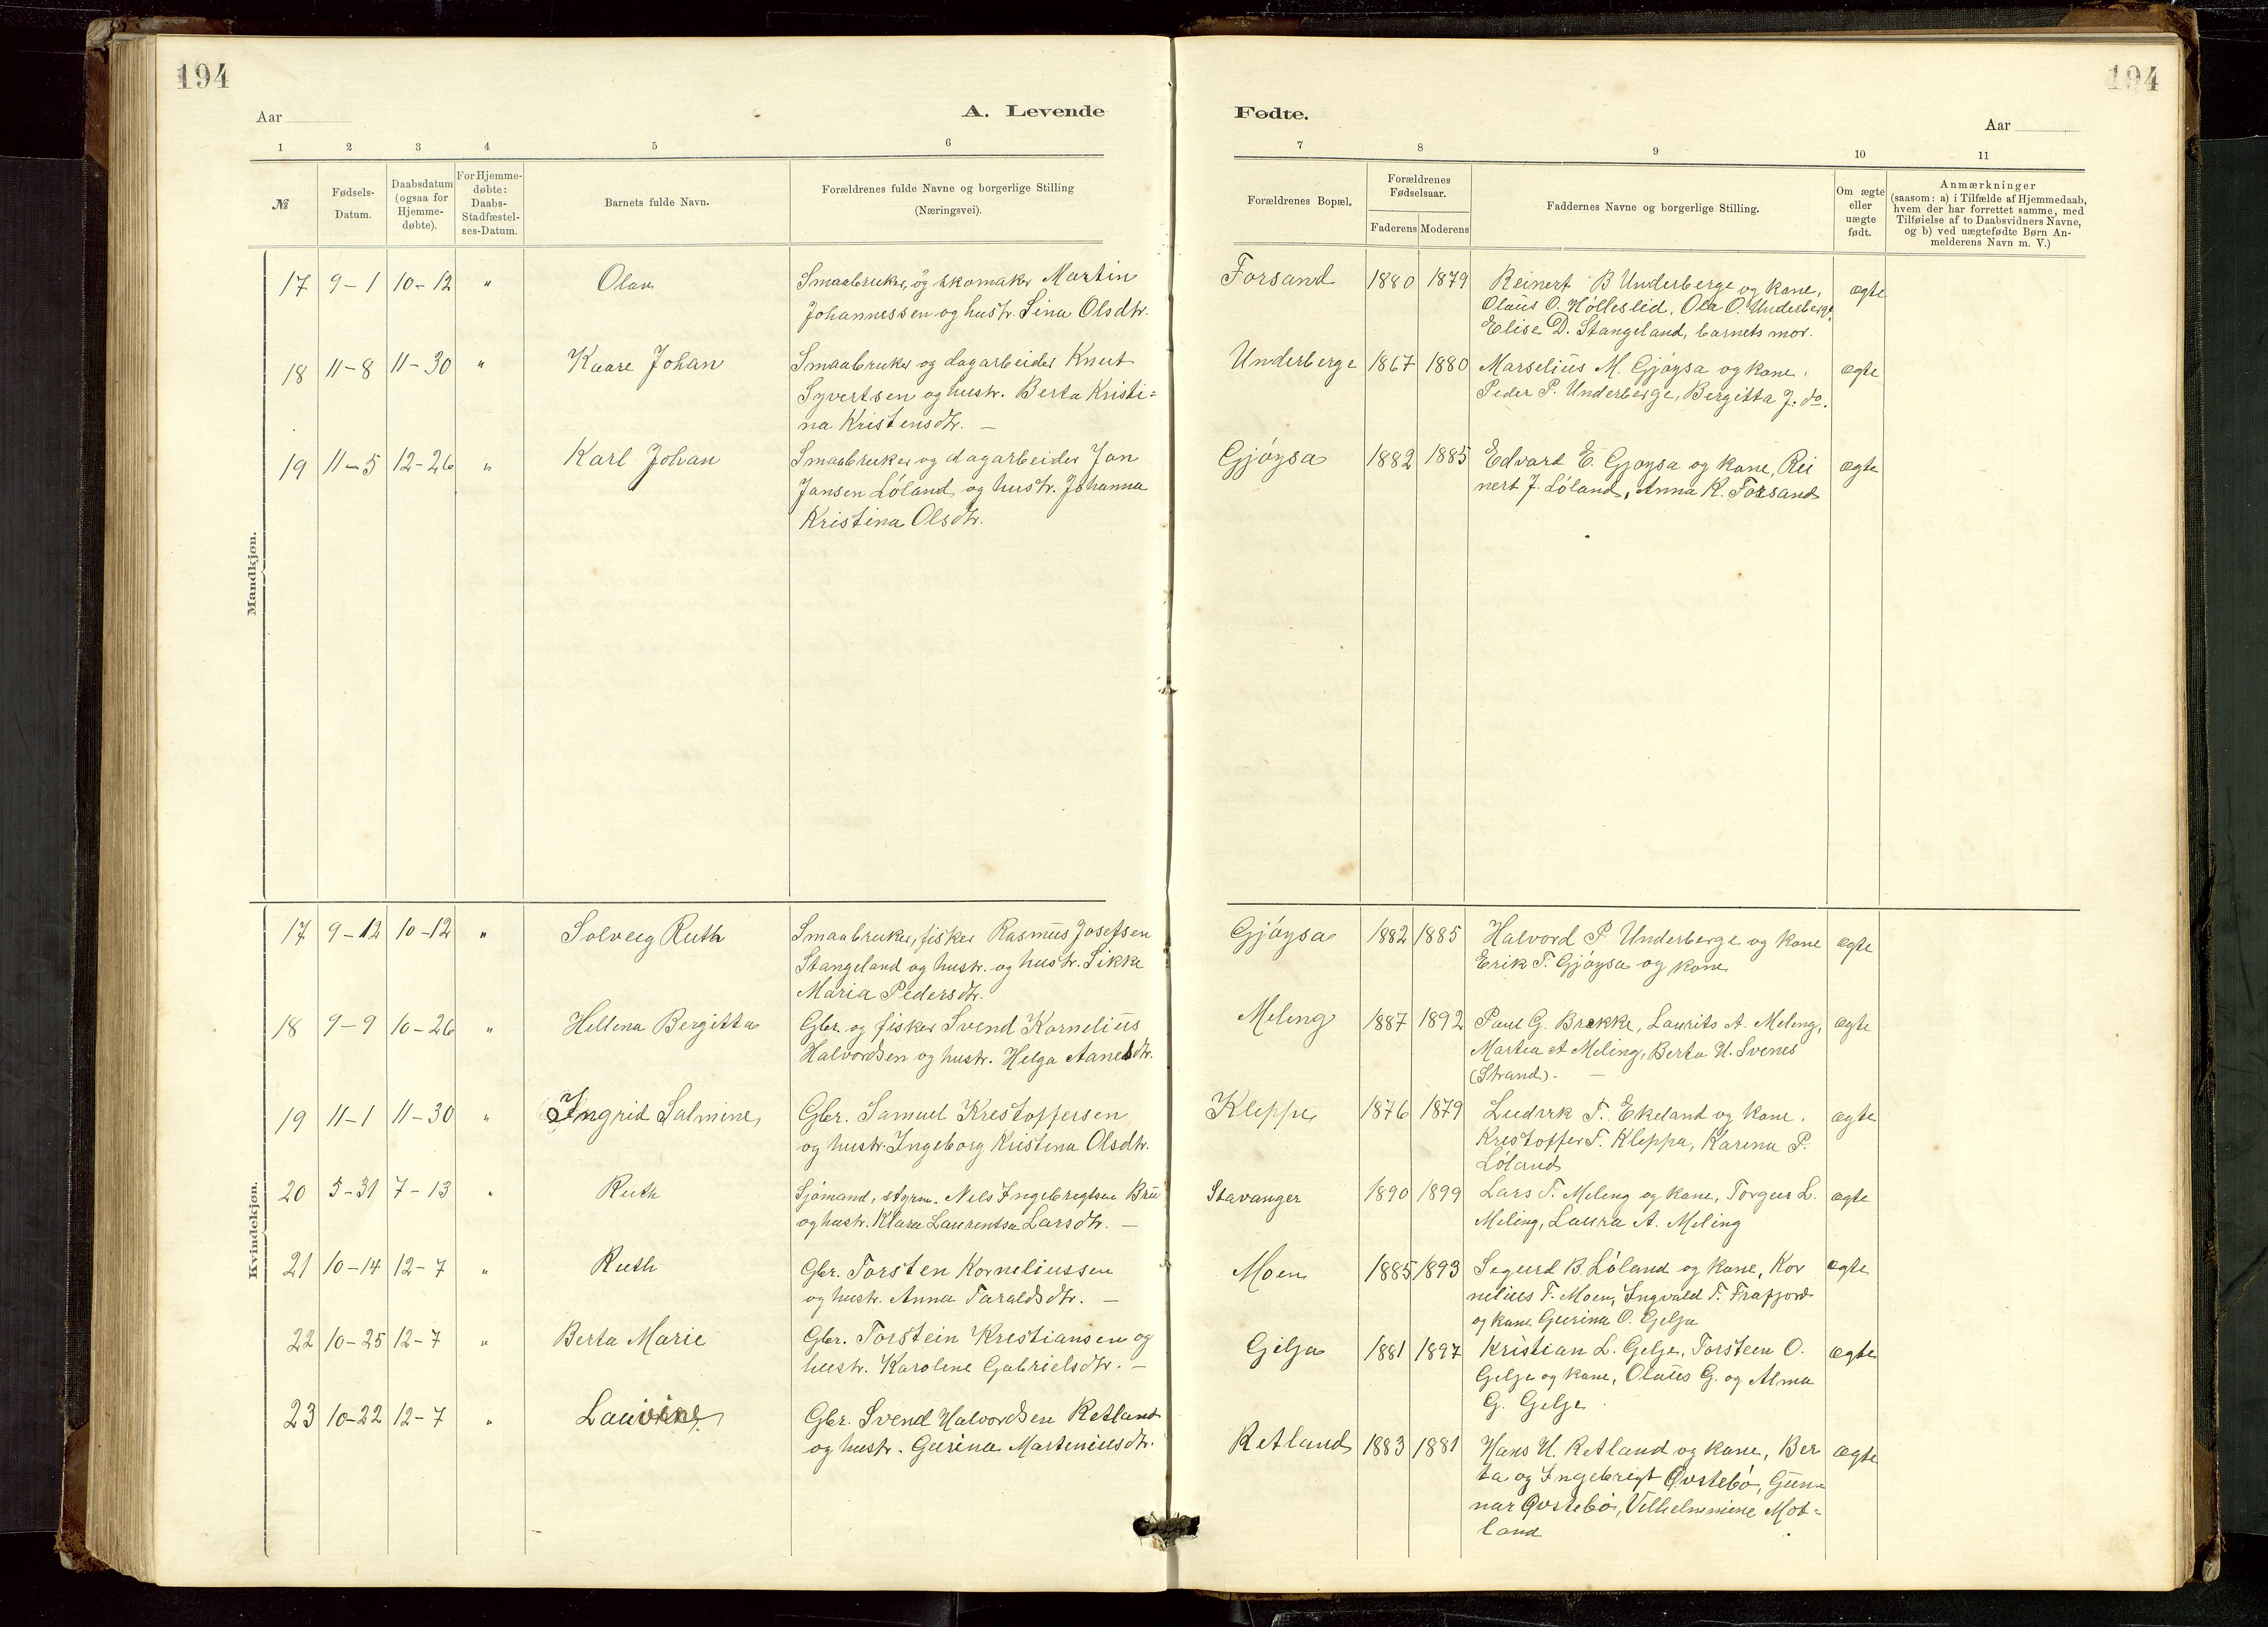 194
194
Aar
A. Levende
Fødte.
Aar
1 2 3 4 5 6 7 8 9 10 11
№
Fødsels-Datum.
Daabsdatum (ogsaa for Hjemme-døbte).
For Hjemme-døbte: Daabs-Stadfæstel-ses-Datum.
Barnets fulde Navn.
Forældrenes fulde Navne og borgerlige Stilling
(Næringsvei).
Forældrenes Bopæl.
Forældrenes Fødselsaar.
Faderens Moderens
Faddernes Navne og borgerlige Stilling.
Om ægte eller uægte født.
Anmærkninger
(saasom: a) i Tilfælde af Hjemmedaab,
hvem der har forrettet samme, med
Tilføielse af to Daabsvidners Navne,
og b) ved uægtefødte Børn An-
melderens Navn m. V.)
Mandkjøn.
17 9-1 10-12 " Olav Smaabruker og skomaker Martin Forsand 1880 1879 Reinert B Underberge og kone, ægte
Johannessen og hustr. Sina Olsdtr. Olaus O. Hølleslid, Ola O. Underberge,
Elise D. Stangeland, barnets mor.
18 11-8 11-30 " Kaare Johan Smaabruker og dagarbeider Knut Underberge 1867 1880 Marselius M. Gjøysa og kone, ægte
Syvertsen og hustr. Berta Kristi= Peder P. Underberge, Bergitta J. do.
na Kristensdtr. —
19 11-5 12-26 " Karl Johan Smaabruker og dagarbeider Jan Gjøysa 1882 1885 Edvart E. Gjøysa og kone, Rei ægte
Jansen Løland og hustr. Johanna nert J. Løland, Anna K. Forsand
Kristina Olsdtr.
Kvindekjøn.
17 9-12 10-12 " Solveig Ruth Smaabruker, fisker Rasmus Josefsen Gjøysa 1882 1885 Halvord P. Underberge og kone ægte
Stangeland og hustr. og hustr. Sikke Erik T. Gjøysa og kone
Maria Pedersdtr.
18 9-9 10-26 " Hellena Bergitta Gbr. og fisker Svend Kornelius Meling 1887 1892 Paul G. Brekke, Laurits A. Meling, ægte
Halvordsen og hustr. Helga Aanesdtr. Martea A Meling, Berta H. Svenes
(Strand). —
19 11-1 11-30 " Ingrid Salmine Gbr. Samuel Krestoffersen Kleppe 1876 1879 Ludvik T. Ekeland og kone. ægte
og hustr. Ingeborg Kristina Olsdtr. Krestoffer T. Kleppa, Karina P.
Løland
20 5-31 7-13 " Ruth Sjømand, styrm. Nils Ingebregtsen Bru Stavanger 1890 1899 Lars T. Meling og kone, Torger L. ægte
og hustr. Klara Laurentsa Larsdtr. — Meling, Laura A. Meling
21 10-14 12-7 " Ruth Gbr. Torsten Korneliussen Moen 1885 1893 Segurd B. Løland og kone, Kor ægte
og hustr. Anna Taraldsdtr. — nelius T. Moen, Ingvald T. Frafjord
og kone Gurina O. Gelja
22 10-25 12-7 " Berta Marie Gbr. Torstein Kristiansen og Gilja 1881 1897 Kristian L. Gelje, Torsteen O. ægte
hustr. Karolene Gabrielsdtr. — Gelje og kone, Olaus G. og Alma
G. Gelje
23 10-22 12-7 " Gbr. Svend Halvordsen Retland Retland 1883 1881 Hans H. Retland og kone, Ber ægte
og hustr. Gurina Marteniusdtr. ta og Ingebrigt Øvstebø, Gun=
nar Øvstebø, Vilhelmmine Mot=
land